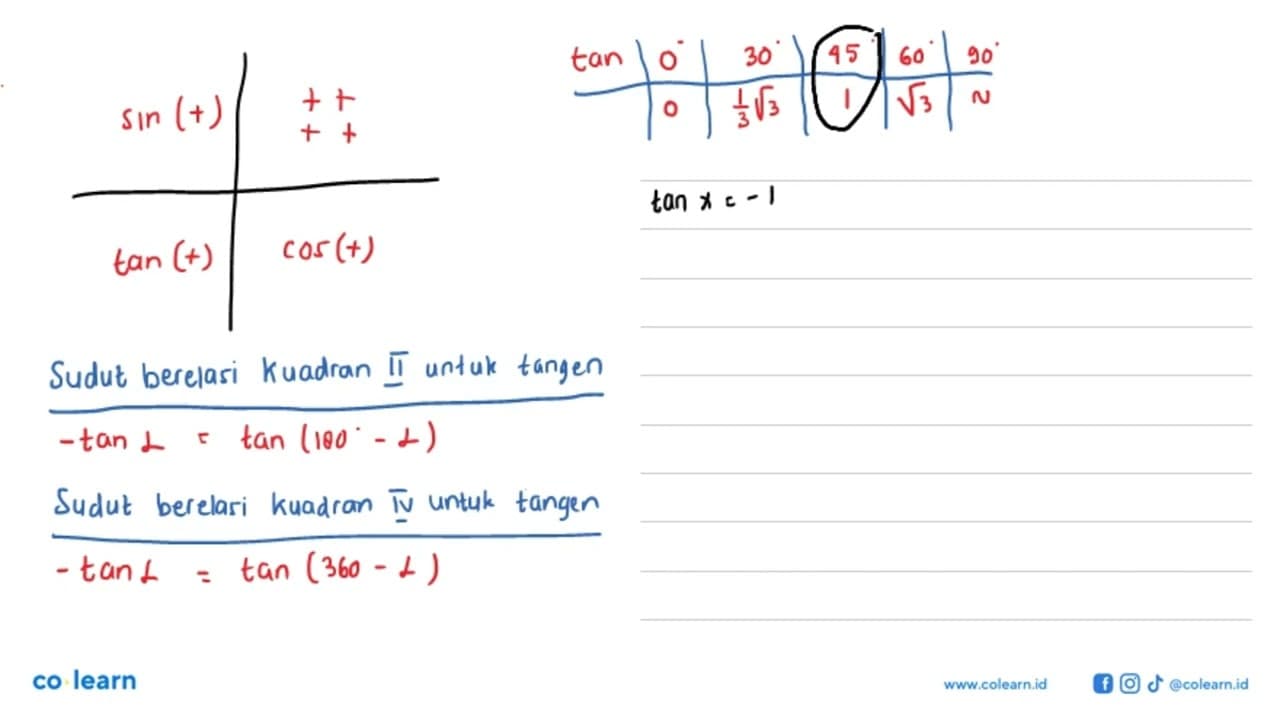 sin (+)
+ +
+ +
tan (+)
cos (+)
tan 0° 30° 45° 60° 90°
0 1/3√3 1 √3 ~
tan x = -1
Sudut berelasi Kuadran II untuk tangen
- tan α = tan (180° - α)
Sudut berelasi kuadran IV untuk tangen
- tan α = tan (360 - α)
co·learn
www.colearn.id
@colearn.id